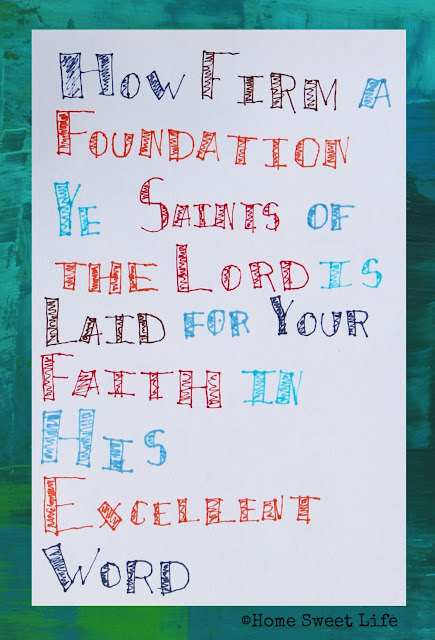 How Firm a
Foundation
Ye Saints of
the Lord is
Laid for Your
Faith in
His
Excellent
Word
©Home Sweet Life